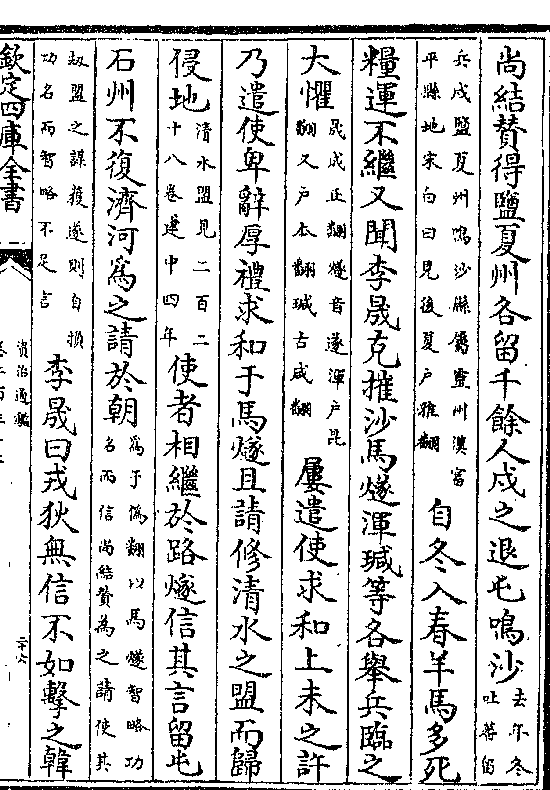 尚結贊得鹽夏州各留千餘人戍之退屯鳴沙去年冬吐蕃留
兵戍鹽夏州鳴沙縣屬靈州漢富平縣地宋白曰見後夏戶雅翻自冬入春羊馬多死
糧運不繼又聞李晟克摧沙馬燧渾瑊等各舉兵臨之
大懼晟成正翻燧音遂渾戶昆翻又戶本翻瑊古咸翻屢遣使求和上未之許
乃遣使卑辭厚禮求和于馬燧且請修清水之盟而歸
侵地清水盟見二百二十八卷建中四年使者相繼於路燧信其言留屯
石州不復濟河爲之請於朝爲于僞翻以馬燧智略功名而信尚結贊為之請使其
刼盟之謀獲遂則自損功名而智略不足言李晟曰戎狄無信不如擊之韓
欽定四庫全書
資治通鑑